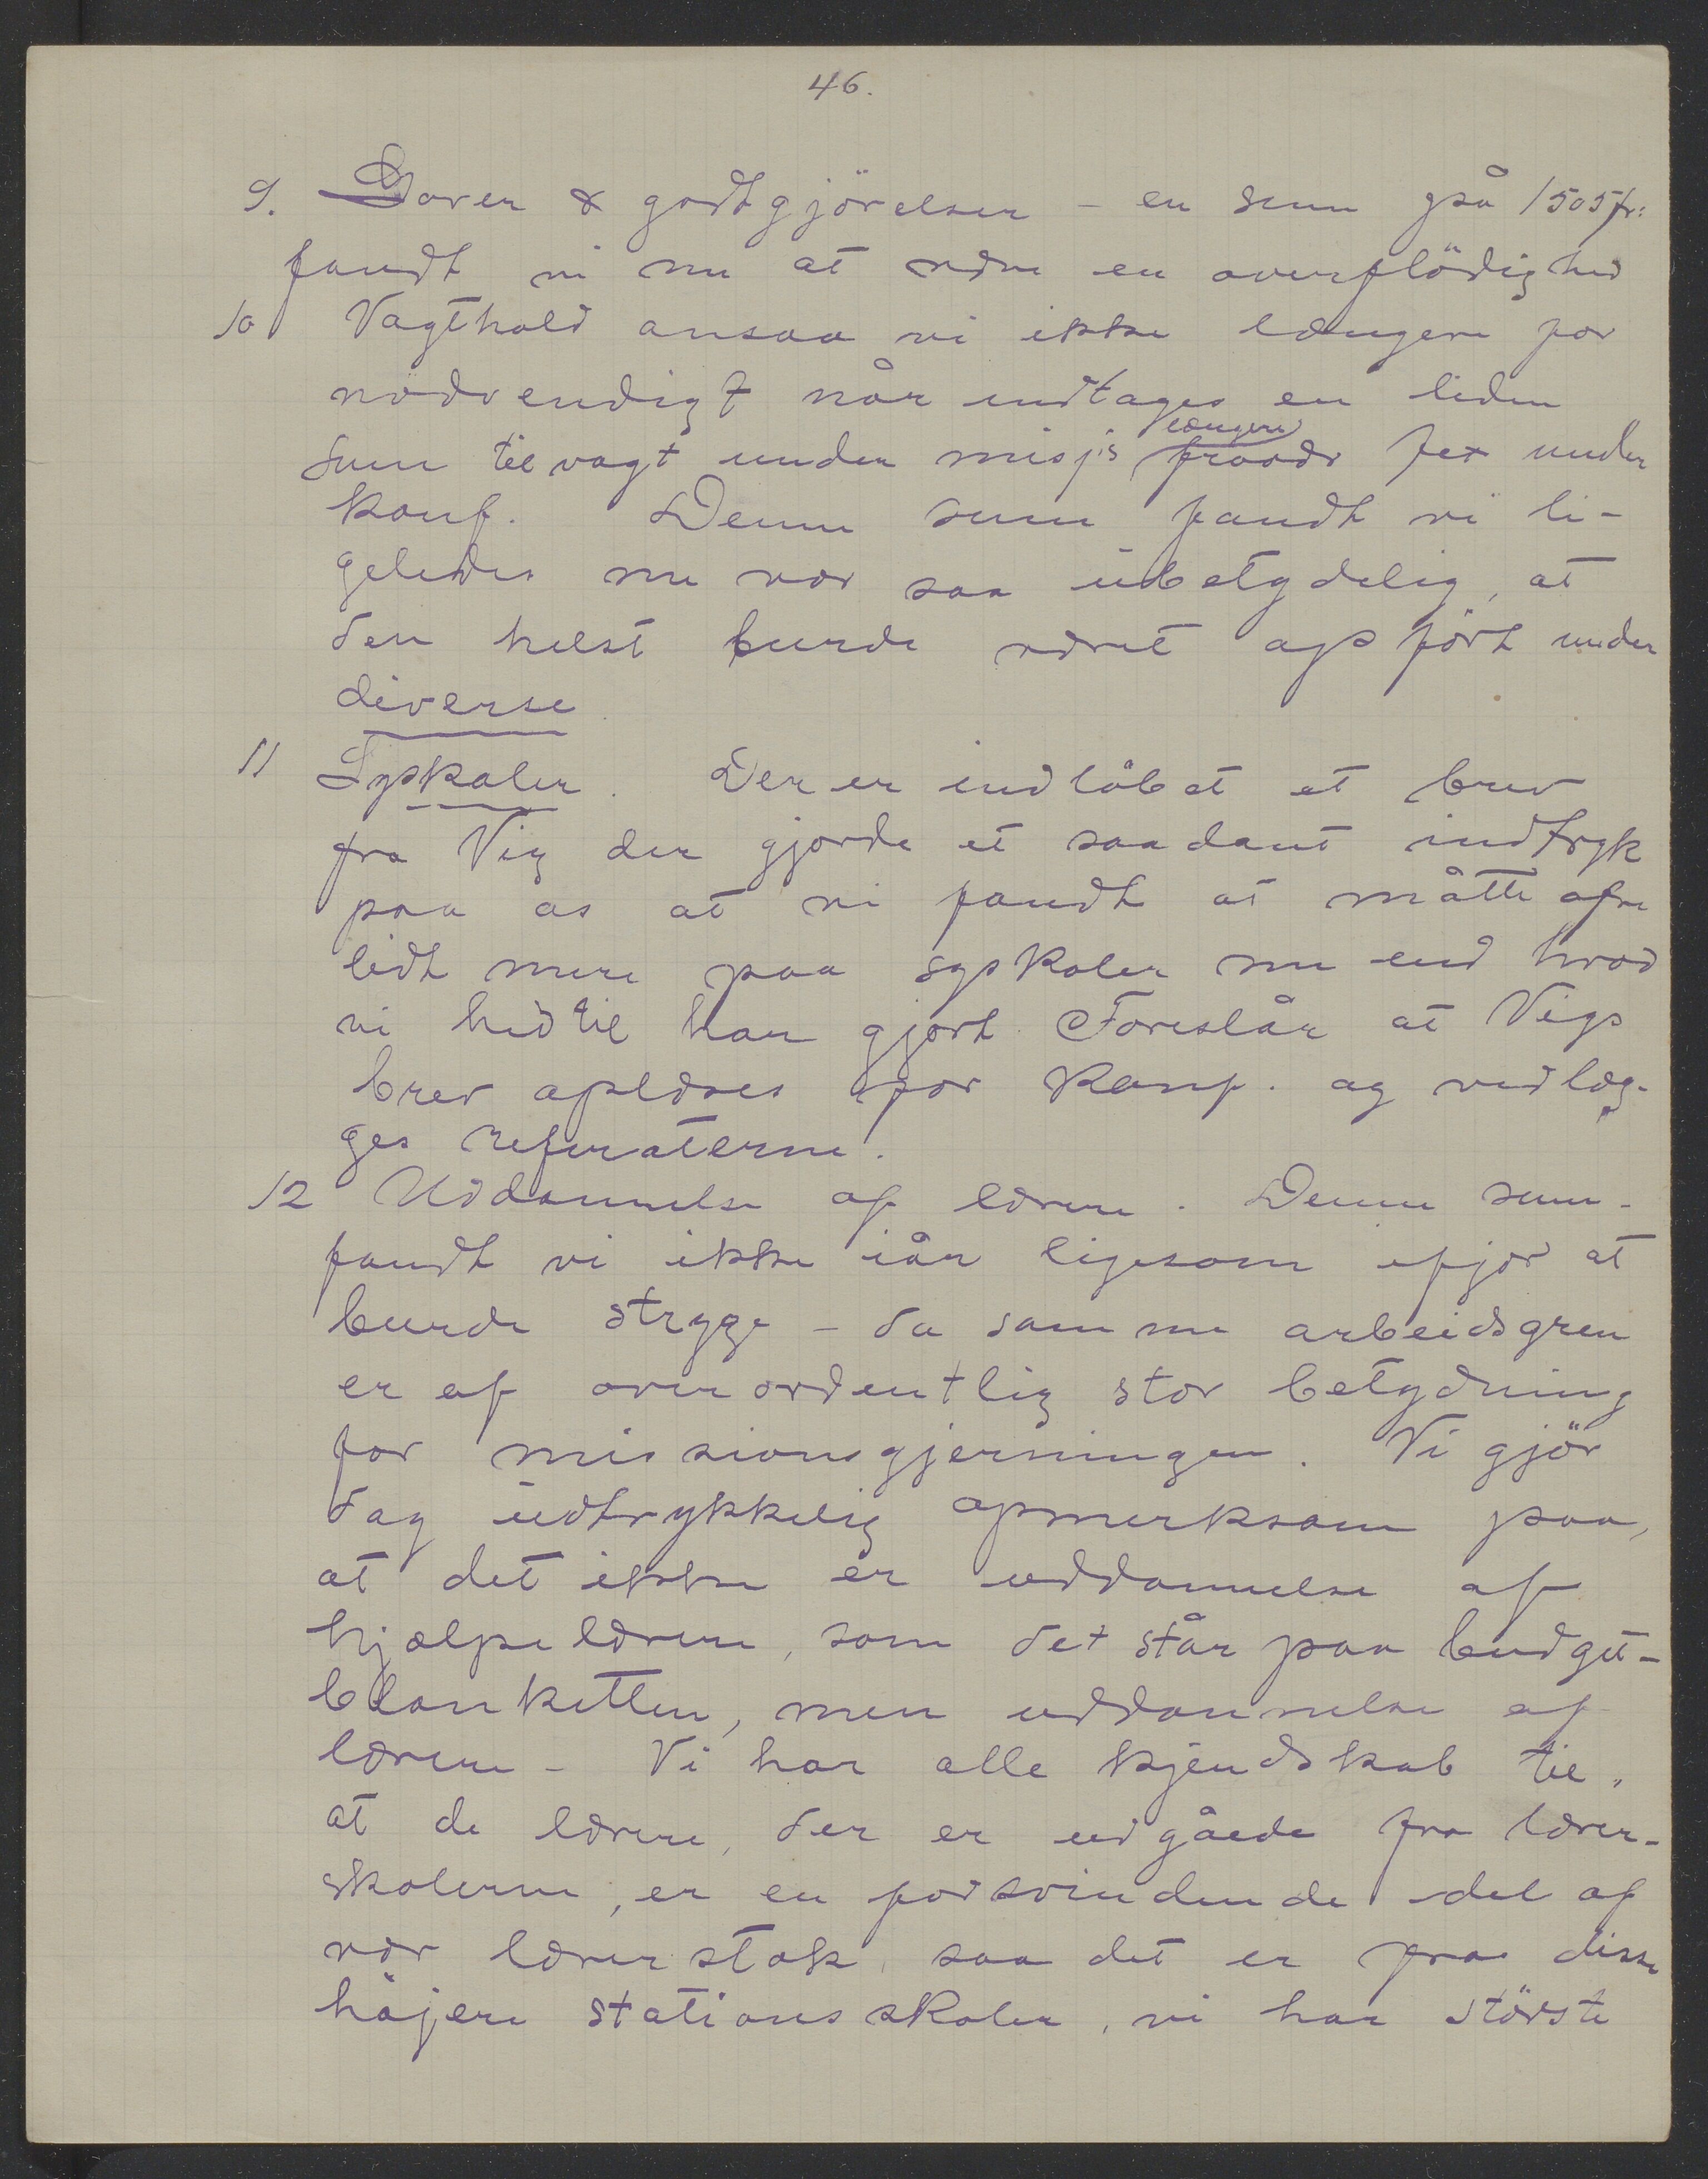 46.
9. Gaver & godtgjörelser - en sum på 1505 fr:
fandt vi nu at være en overflödighed
10 Vagthold ansaa vi ikke længere for
nödvendigt når undtages en liden
længere
sum til vagt under misj's fravær fex under
konf. Denne sum fandt vi li-
geledes nu var saa ubetydelig, at
den helst burde været opfört under
diverse
11 Syskoler. Der er indlöbet et brev
fra Vig der gjorde et saadant indtryk
paa os at vi fandt at måtte ofre
lidt mere paa syskoler nu end hvad
vi hidtil har gjort. Foreslår at Vigs
brev oplæses for konf. og vedlæg-
ges referaterne.
12 Uddannelse af lærere. Denne sum -
fandt vi ikke iår ligesom ifjor at
burde stryge - da samme arbeidsgren
er af overordentlig stor betydning
for missionsgjerningen. Vi gjör
dog udtrykkelig opmerksom paa,
at det ikke er uddannelse af
hjælpelærere, som det står paa budget-
blanketten, men uddannelse af
lærere - Vi har alle kjendskab til,
at de lærere, der er udgåede fra lærer-
skolerne, er en forsvindende del af
vor lærerstok, saa det er fra disse
höjere stationsskoler, vi har störste